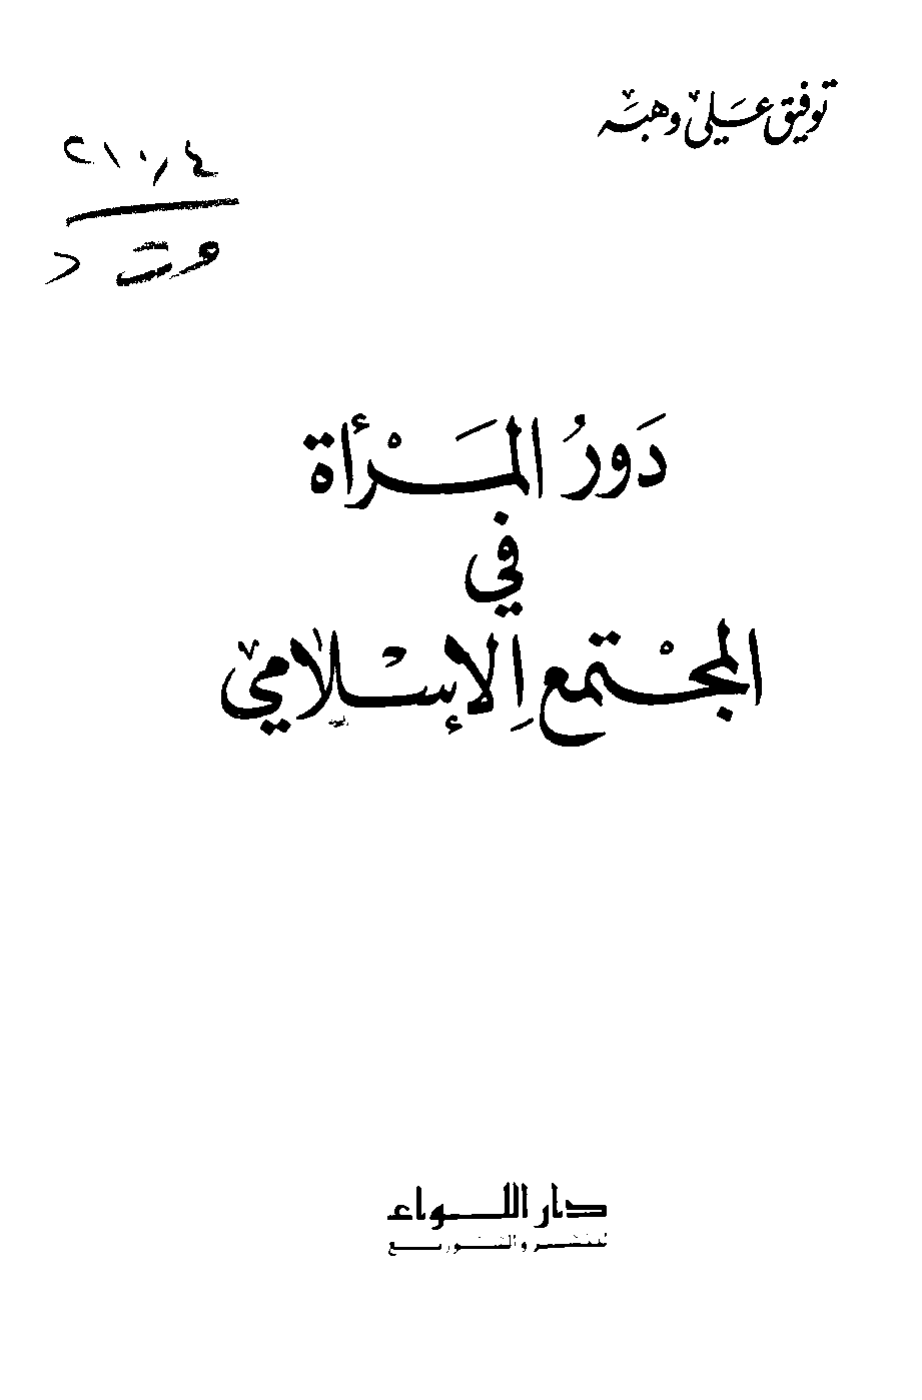 توفيق علي وهبه
٢١٠٫٤
و ت د
دَورُ المَرْأة
في
المجْتمع الإِسْلامي
دار اللواء
للنشر والتوزيع